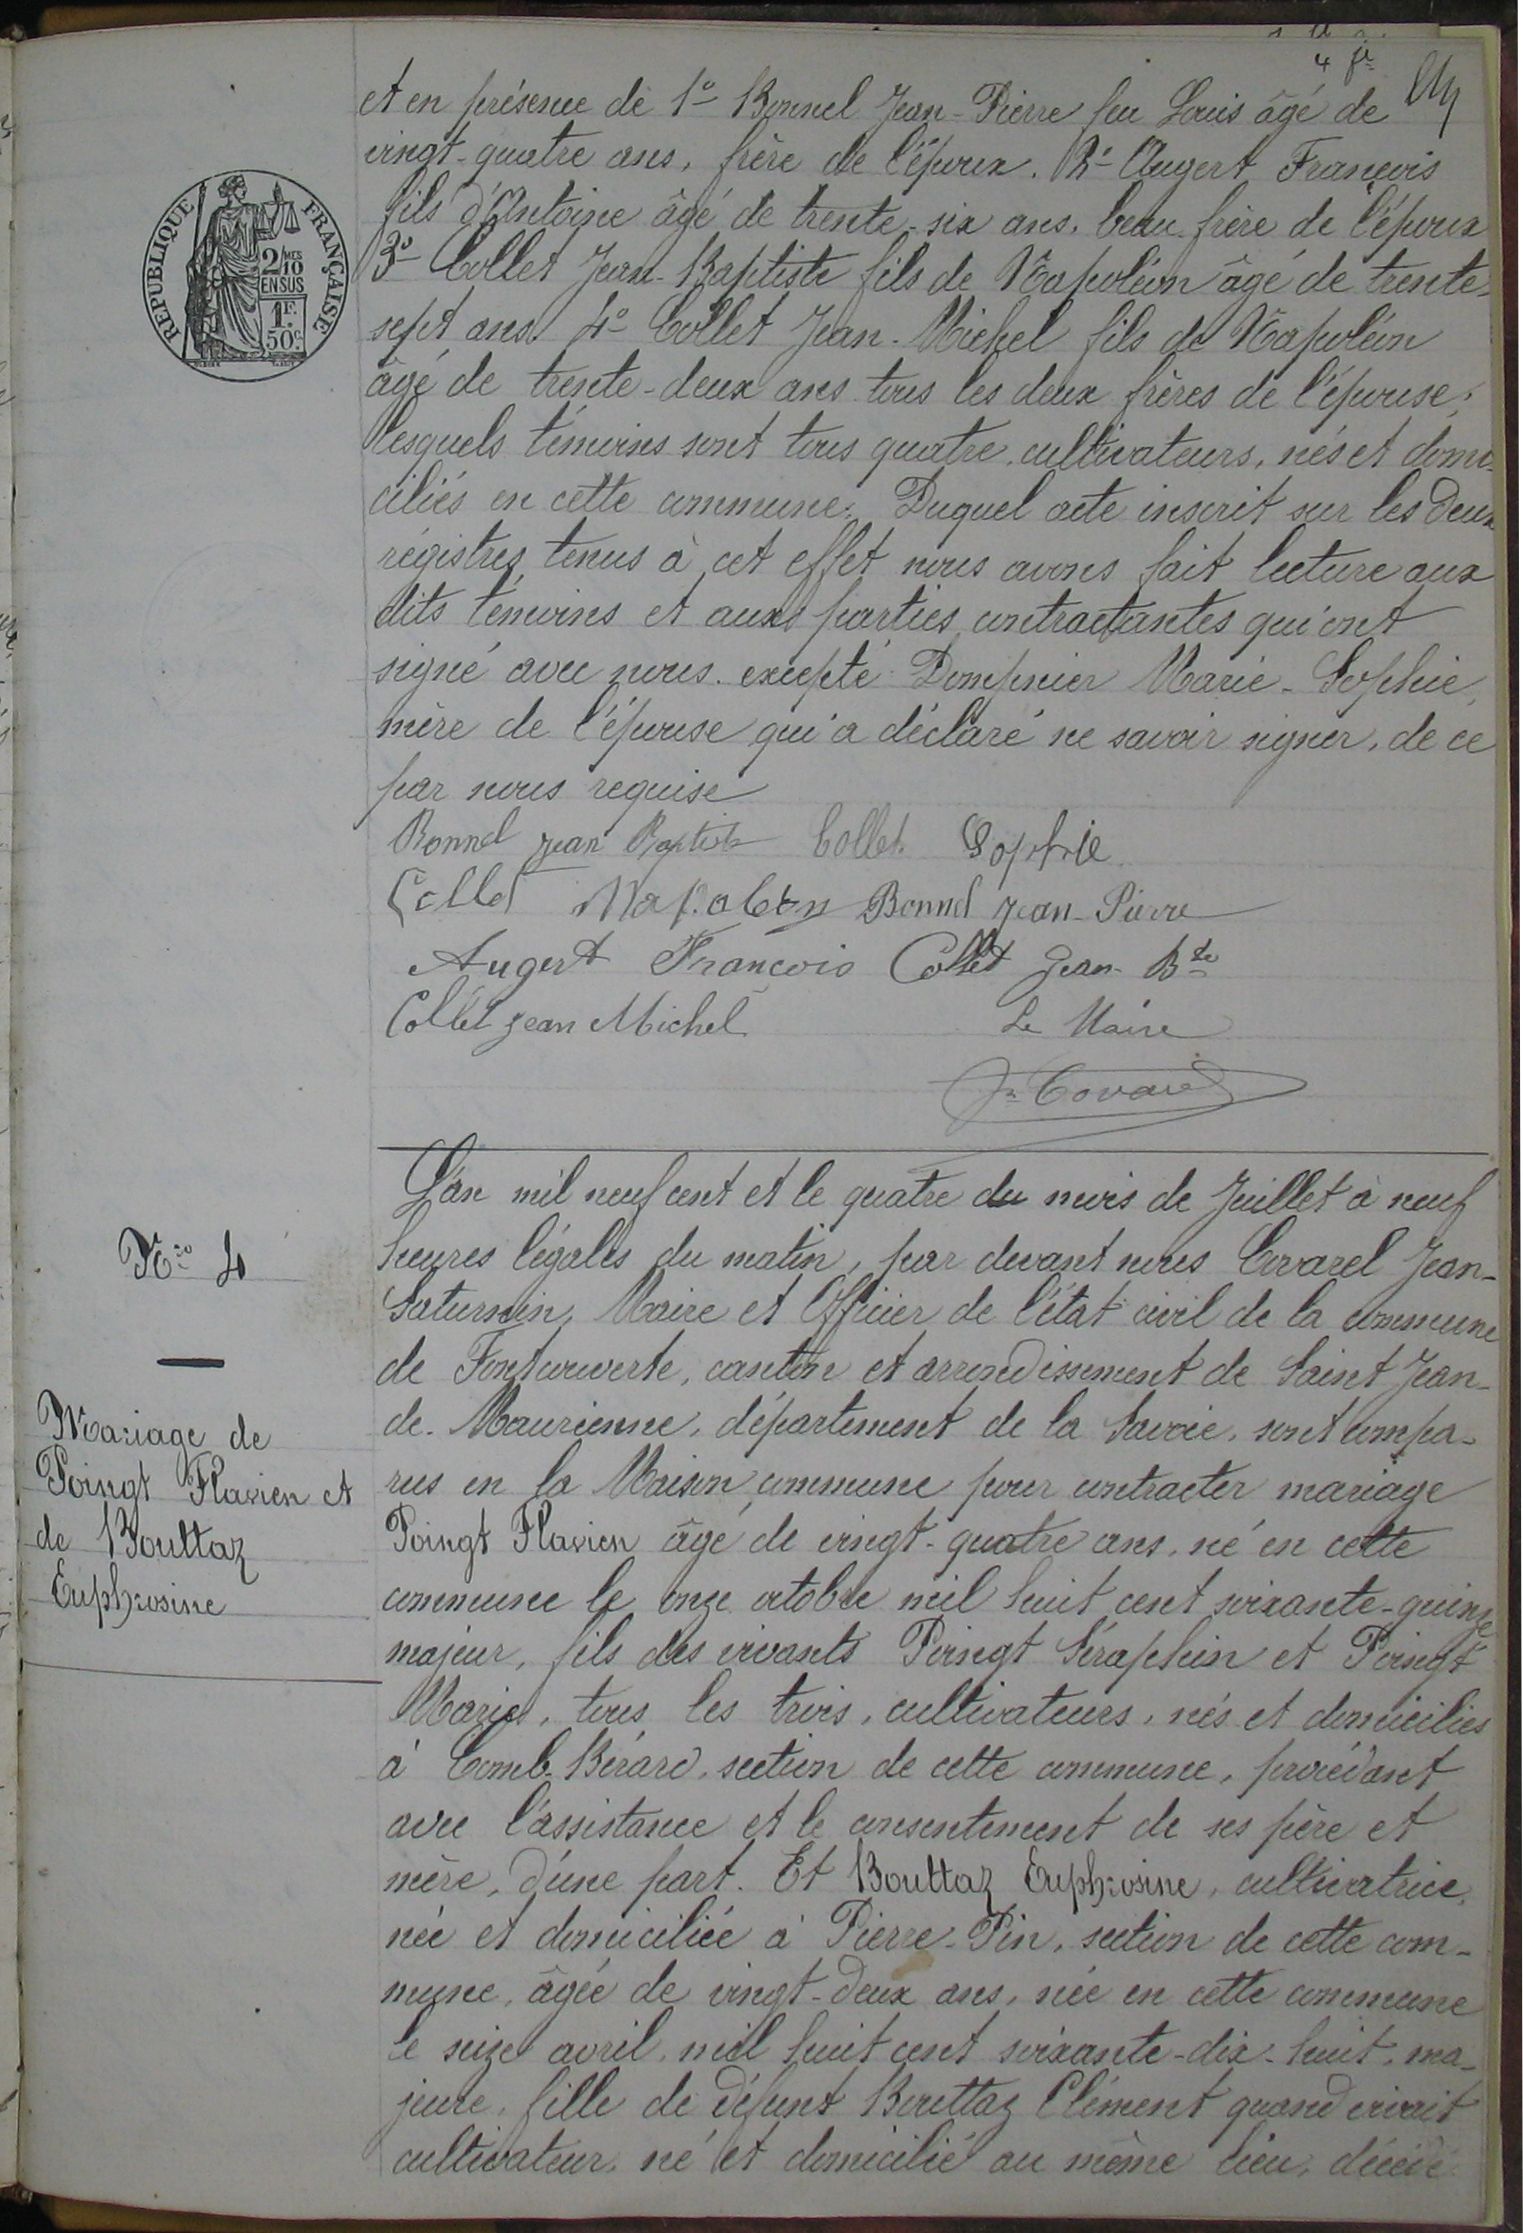 4 je
et en présence de 1º Bonnel Jean-Pierre feu Louis âgé de
vingt-quatre ans, frère de l'époux. 2º Augert François
fils d'Antoine âgé de trente-six ans, beau-frère de l'époux
3º Collet Jean-Baptiste fils de Napoléon âgé de trente-
sept ans. 4º Collet Jean-Michel fils de Napoléon
âgé de trente-deux ans tous les deux frères de l'épouse;
lesquels témoins sont tous quatre cultivateurs, nés et domi-
ciliés en cette commune. Duquel acte inscrit sur les deux
régistres tenus à cet effet nous avons fait lecture aux
dits témoins et aux parties contractantes qui ont
signé avec nous excepté Dompnier Marie-Sophie,
mère de l'épouse qui a déclaré ne savoir signer, de ce
par nous requise
Bonnel Jean Baptiste Collet Sophie
Collet Napoléon Bonnel Jean-Pierre
Augert François Collet Jean-Bte
Collet Jean Michel Le Maire
Jn Covarel
REPUBLIQUE FRANÇAISE
2/10 MES
EN SUS
1F.
50c.
Nro 4
Mariage de
Poingt Flavien et
de Bouttaz
Euphrosine
L'an mil neuf cent et le quatre du mois de Juillet à neuf
heures légales du matin, par devant nous Covarel Jean-
Saturnin, Maire et Officier de l'état civil de la commune
de Fontcouverte, canton et arrondissement de Saint Jean-
de-Maurienne, département de la Savoie, sont compa-
rus en la Maison commune pour contracter mariage
Poingt Flavien âgé de vingt-quatre ans, né en cette
commune le onze octobre mil huit cent soixante-quinze
majeur, fils des vivants Poingt Séraphin et Poingt
Marie, tous les trois, cultivateurs, nés et domiciliés
à Comb-Bérard, section de cette commune, procédant
avec l'assistance et le consentement de ses père et
mère, d'une part. Et Bouttaz Euphrosine, cultivatrice,
née et domiciliée à Pierre-Pin, section de cette com-
mune, âgée de vingt-deux ans, née en cette commune
le seize avril mil huit cent soixante-dix-huit, ma-
jeure, fille de défunt Bouttaz Clément quand vivait
cultivateur, né et domicilié au même lieu, décédé